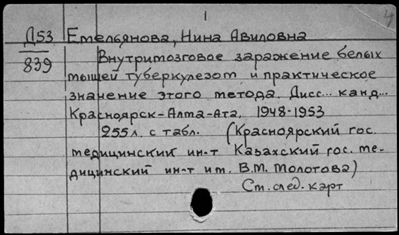 1
Д53 Емельянова, Нина Авиловна
839 Внутримозговое заражение белых
мышей туберкулезом и практическое
значение этого метода. Дисс... канд...
Красноярск-Алма-Ата, 1948-1953
255л. с табл. (Красноярский гос.
медицинский ин-т Казахский гос. ме-
дицинский ин-т им. В.М. Молотова)
См. след. карт